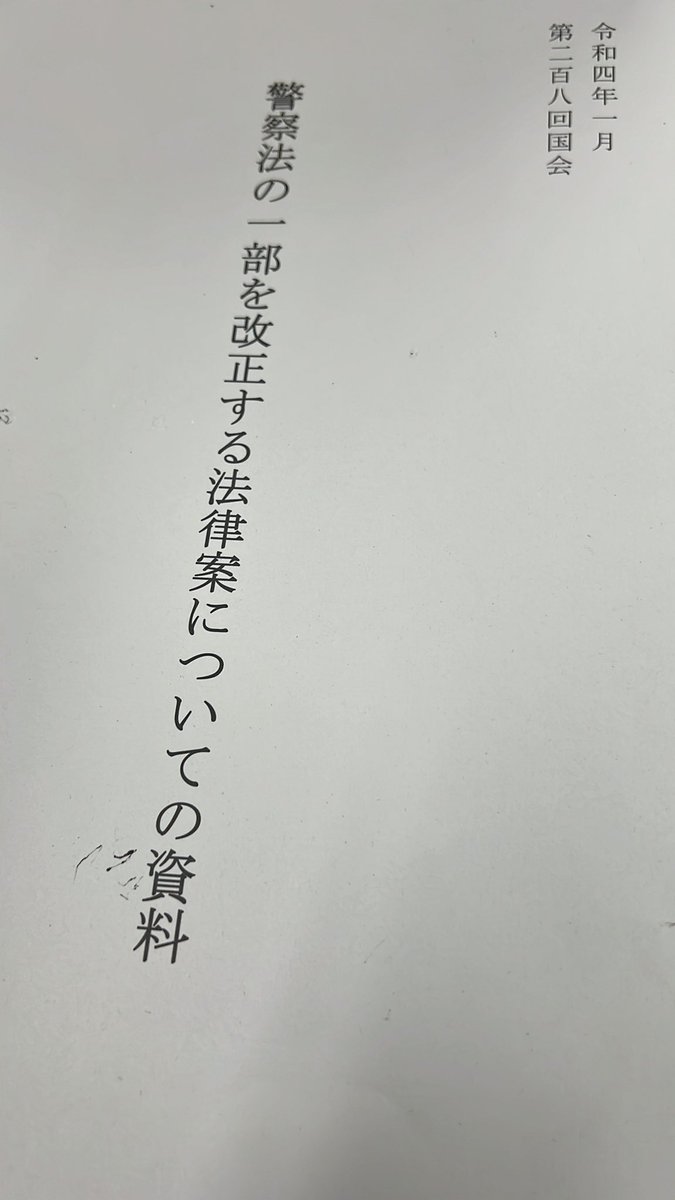 令和四年一月
第二百八回国会
警察法の一部を改正する法律案についての資料